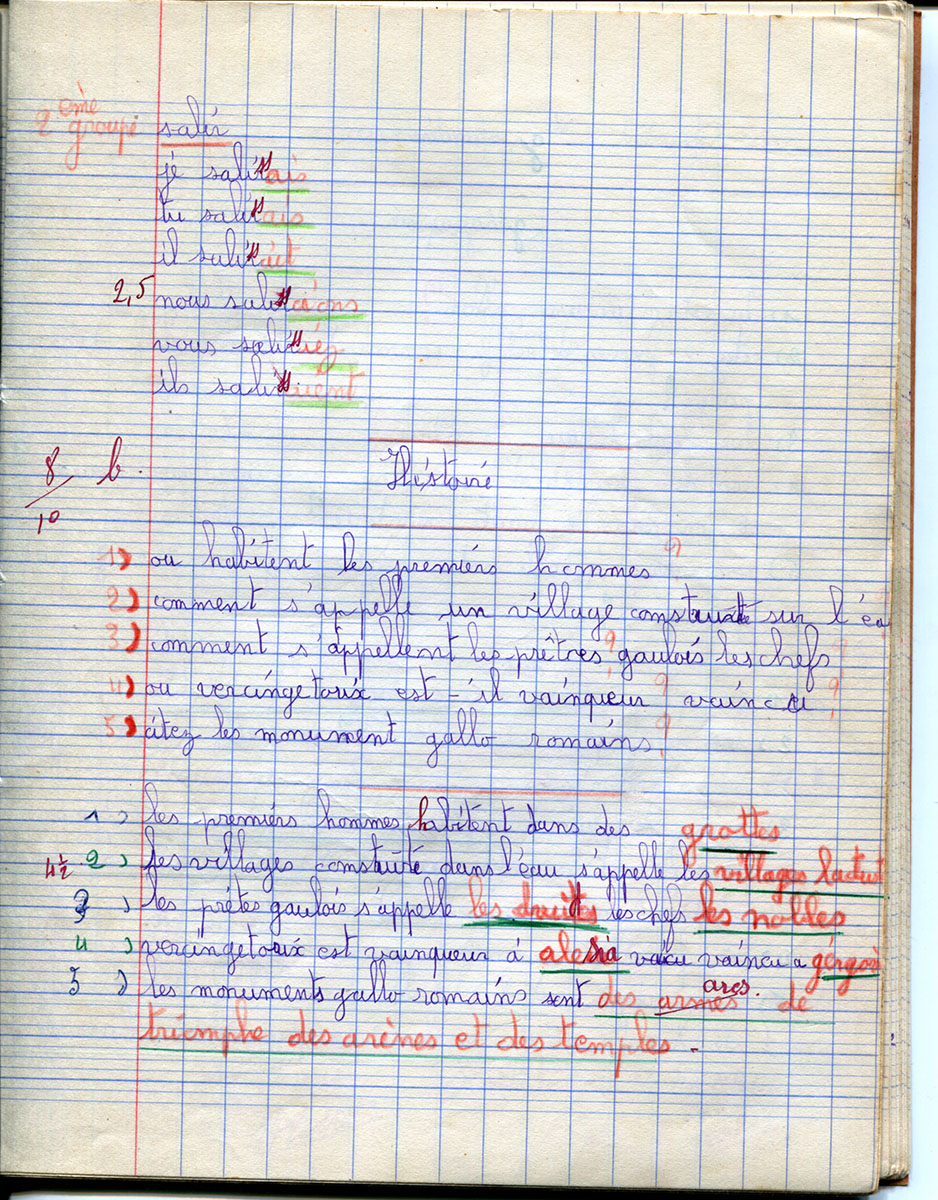 2ème groupe salir
je salissais
tu salissais
il salissait
2,5 nous salissions
vous salissiez
ils salissaient
8/10 b.
Histoire
1) ou habitent les premiers hommes ?
2) comment s'appelle un village construite sur l'ea
3) comment s'appellent les prêtres gaulois ? les chefs ?
4) ou vercingetorix est-il vainqueur ? vaincu ?
5) citez les monument gallo romains ?
1) les premiers hommes habitent dans des grottes
4½ 2) les villages construite dans l'eau s'appelle les villages lacust
3) les prêtes gaulois s'appelle les druides les chefs les nobles
4) vercingetorix est vainqueur à alesia vaincu a gergovi
5) les monuments gallo romains sont des armes arcs. de
triomphe des arènes et des temples.